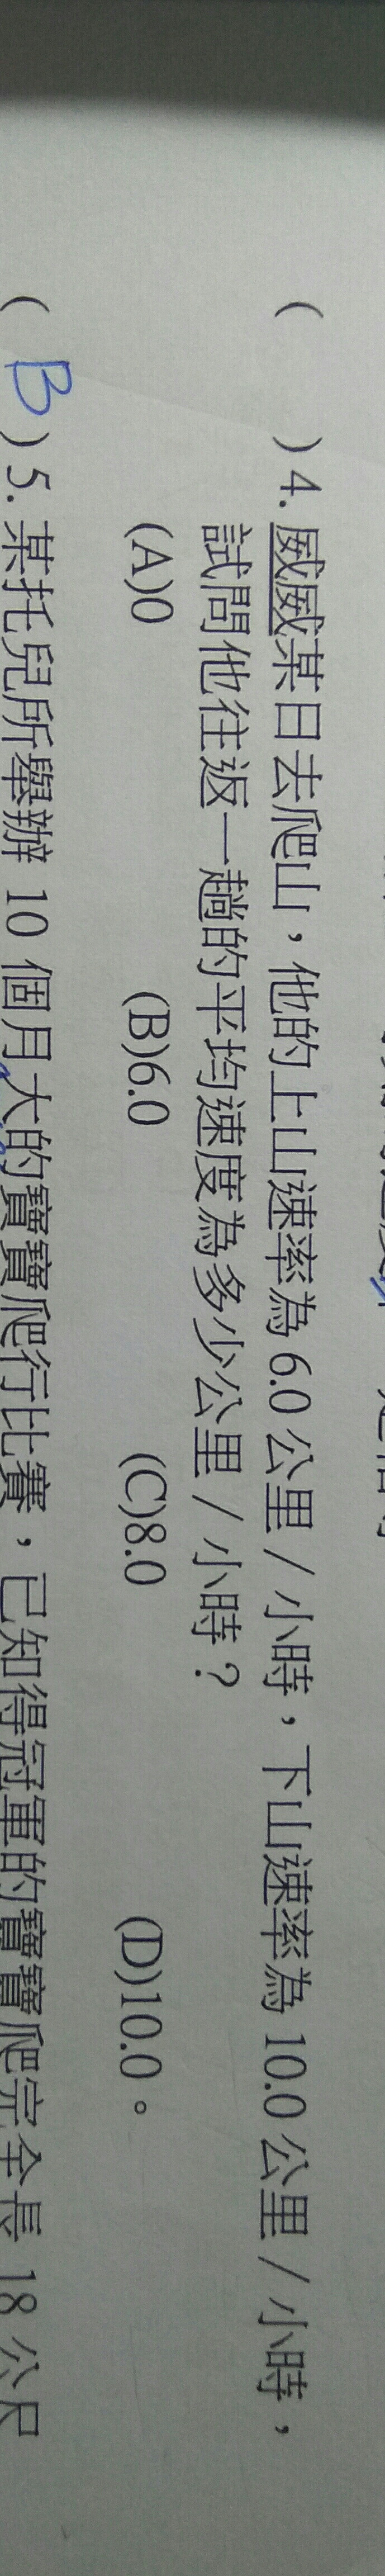 ( )4.威威某日去爬山，他的上山速率為 6.0 公里／小時，下山速率為 10.0 公里／小時，
試問他往返一趟的平均速度為多少公里／小時？
(A)0 (B)6.0 (C)8.0 (D)10.0。
( B )5.某托兒所舉辦 10 個月大的寶寶爬行比賽，已知得冠軍的寶寶爬完全長 18 公尺